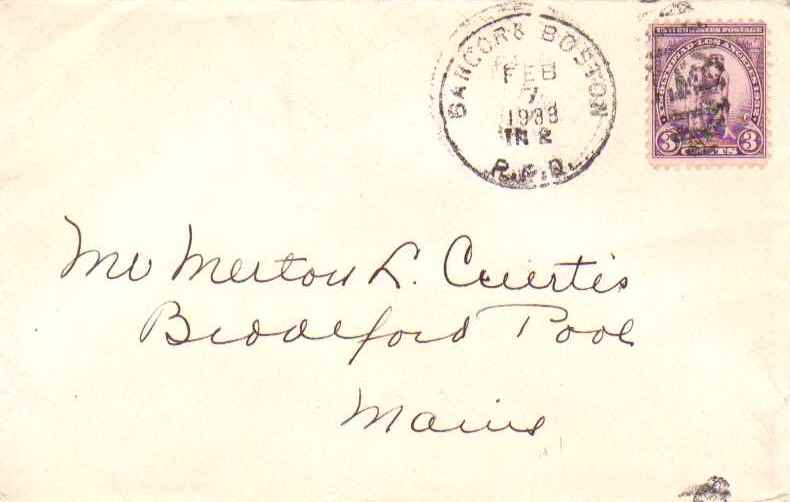 BANGOR & BOSTON
FEB
7
1933
TR 2
R.P.O.
UNITED STATES POSTAGE
3 3
CENTS
Mr Merton L. Curtis
Biddeford Pool
Maine